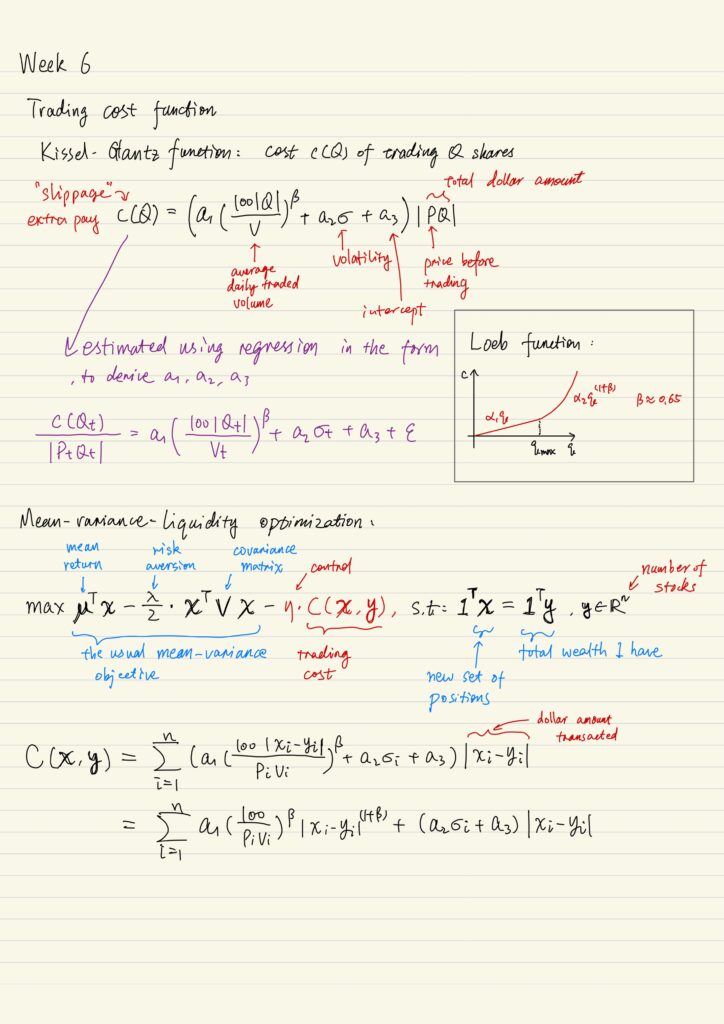 Week 6
Trading cost function
Kissel-Glantz function: cost c(Q) of trading Q shares
"slippage"
extra pay
total dollar amount
C(Q) = (a₁(100|Q|/V)^β + a₂σ + a₃)|PQ|
average
daily traded
volume
volatility
intercept
price before
trading
estimated using regression in the form
, to derive a₁, a₂, a₃
C(Qt)/|PtQt| = a₁(100|Qt|/Vt)^β + a₂σt + a₃ + ε
Loeb function:
c
α₁q
α₂q^(1+β)
β ≈ 0.65
qmax
q
Mean-variance-liquidity optimization:
mean
return
risk
aversion
covariance
matrix
control
number of
stocks
max μᵀx - λ/2 · xᵀVx - η·C(x,y), s.t: 1ᵀx = 1ᵀy, y∈Rⁿ
the usual mean-variance
objective
trading
cost
new set of
positions
total wealth I have
dollar amount
transacted
C(x,y) = Σ_{i=1}^{n} (a₁(100|xi-yi|/PiVi)^β + a₂σi + a₃)|xi-yi|
= Σ_{i=1}^{n} a₁(100/PiVi)^β |xi-yi|^(1+β) + (a₂σi + a₃)|xi-yi|